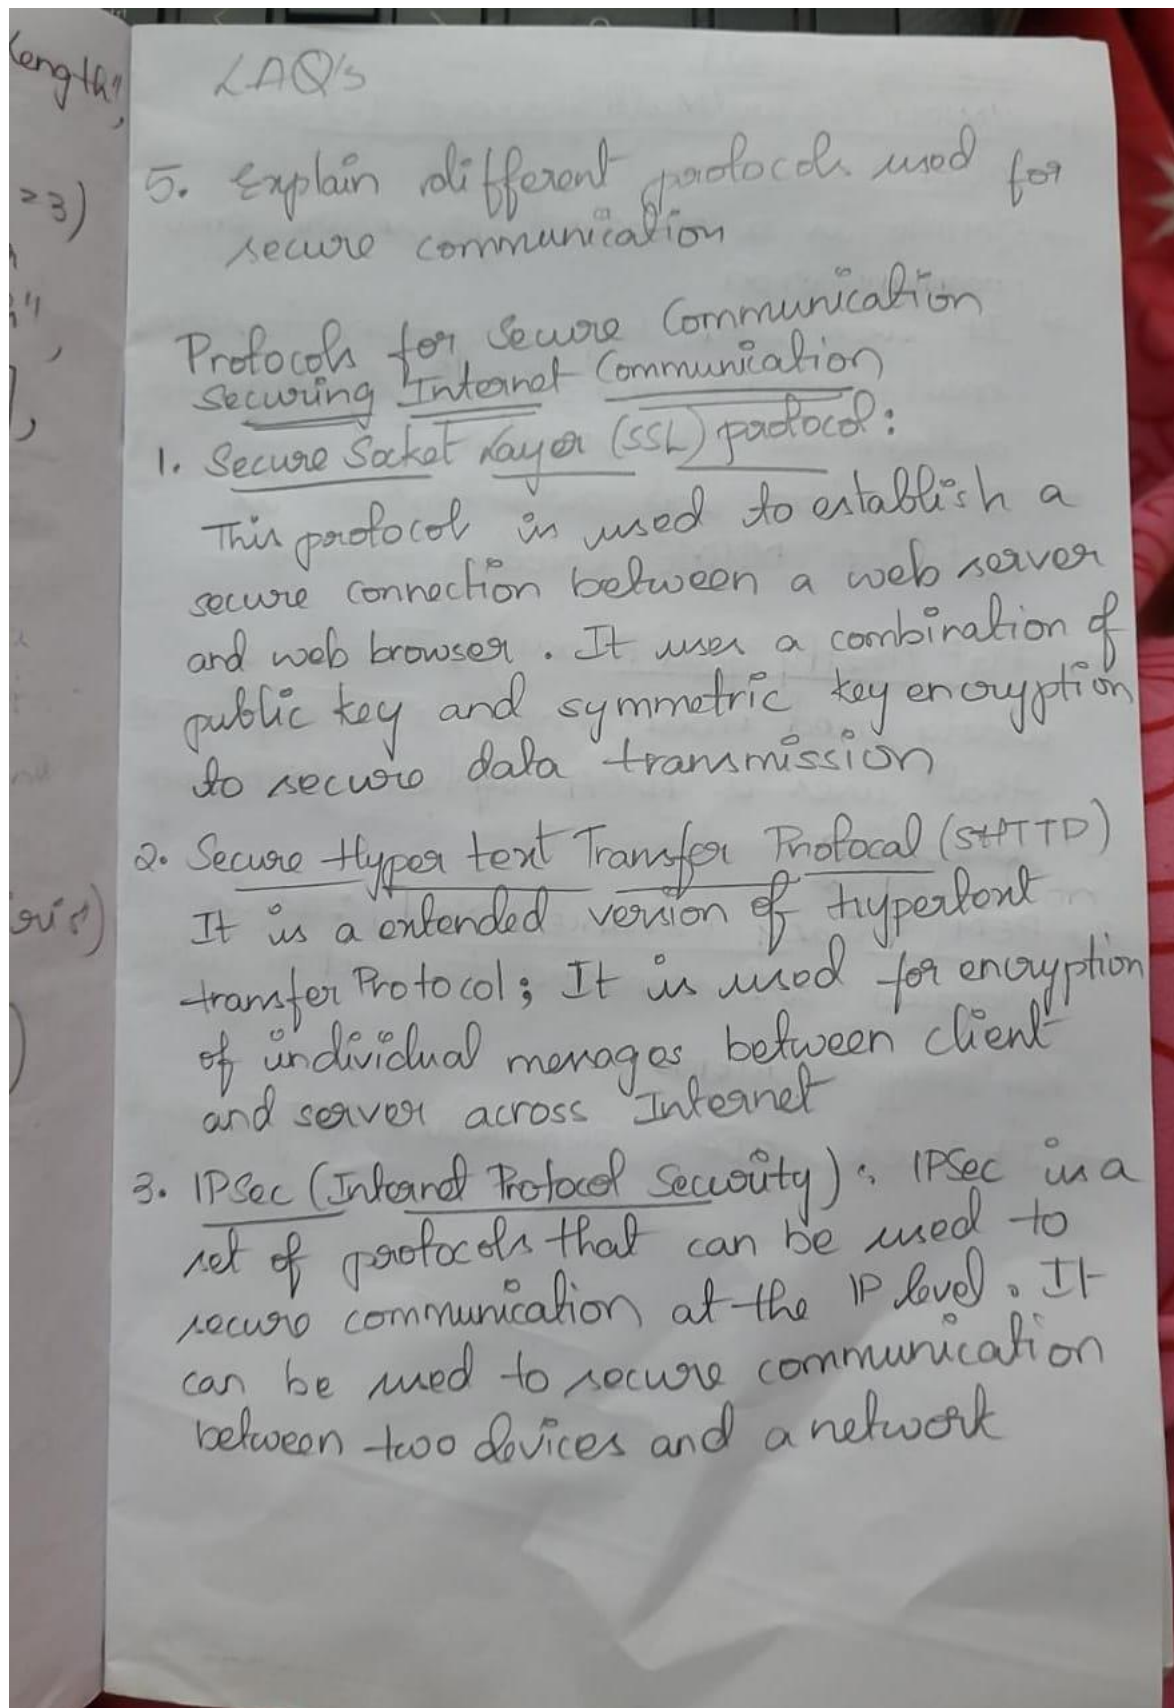 LAQ's
5. Explain different protocols used for
secure communication
Protocols for Secure Communication
Securing Internet Communication
1. Secure Socket Layer (SSL) protocol:
This protocol is used to establish a
secure connection between a web server
and web browser. It uses a combination of
public key and symmetric key encryption
to secure data transmission
2. Secure Hyper text Transfer Protocal (SHTTP)
It is a extended version of Hypertext
transfer Protocol; It is used for encryption
of individual messages between client
and server across Internet
3. IPSec (Internet Protocol Security): IPSec is a
set of protocols that can be used to
secure communication at the IP level. It
can be used to secure communication
between two devices and a network
length",
=3)